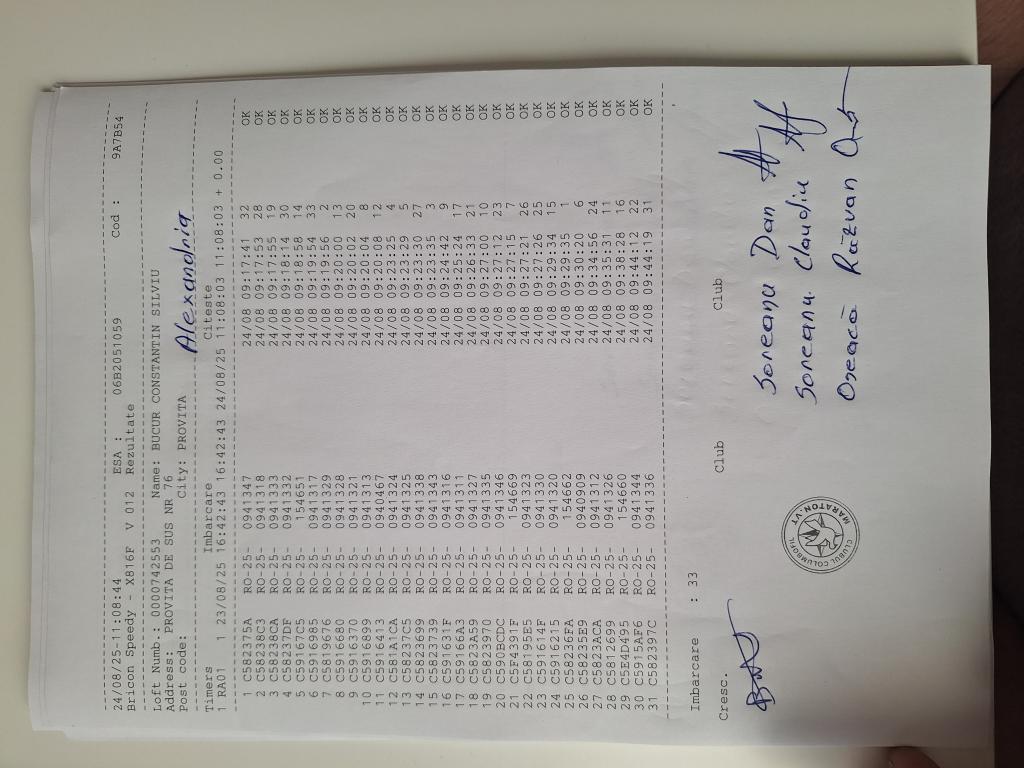 24/08/25-11:08:44 ESA : 06B2051059 Cod : 9A7B54
Bricon Speedy - X816F V 012 Rezultate
Loft Numb.: 0000742553 Name: BUCUR CONSTANTIN SILVIU
Address: PROVITA DE SUS NR 76
Post code: City: PROVITA Alexandria
Timers Imbarcare Citeste
1 RA01 1 23/08/25 16:42:43 16:42:43 24/08/25 11:08:03 11:08:03 + 0.00
1 C582375A RO-25- 0941347 24/08 09:17:41 32 OK
2 C58238C3 RO-25- 0941318 24/08 09:17:53 28 OK
3 C58238CA RO-25- 0941333 24/08 09:17:55 19 OK
4 C58237DF RO-25- 0941332 24/08 09:18:14 30 OK
5 C59167C5 RO-25- 154651 24/08 09:18:58 14 OK
6 C5916985 RO-25- 0941317 24/08 09:19:54 33 OK
7 C5819676 RO-25- 0941329 24/08 09:19:56 2 OK
8 C5916680 RO-25- 0941328 24/08 09:20:00 13 OK
9 C5916370 RO-25- 0941321 24/08 09:20:02 20 OK
10 C5916899 RO-25- 0941313 24/08 09:20:04 8 OK
11 C5916413 RO-25- 0940467 24/08 09:20:08 12 OK
12 C581A1CA RO-25- 0941324 24/08 09:23:25 4 OK
13 C58237C5 RO-25- 0941325 24/08 09:23:29 5 OK
14 C5823699 RO-25- 0941338 24/08 09:23:30 27 OK
15 C5823739 RO-25- 0941343 24/08 09:23:35 3 OK
16 C591631F RO-25- 0941316 24/08 09:24:42 9 OK
17 RO-25- 0941311 24/08 09:25:24 17 OK
18 C5823A59 RO-25- 0941327 24/08 09:26:33 21 OK
19 C5823970 RO-25- 0941335 24/08 09:27:00 10 OK
20 C590BCDC RO-25- 0941346 24/08 09:27:12 23 OK
21 C5F4391F RO-25- 154669 24/08 09:27:15 7 OK
22 C58195E5 RO-25- 0941323 24/08 09:27:21 26 OK
23 C591614F RO-25- 0941330 24/08 09:27:26 25 OK
24 C5916215 RO-25- 0941320 24/08 09:29:34 15 OK
25 C58236FA RO-25- 154662 24/08 09:29:35 1 OK
26 C58235E9 RO-25- 0940909 24/08 09:30:20 6 OK
27 C5823ACA RO-25- 0941312 24/08 09:34:56 24 OK
28 C5812699 RO-25- 0941326 24/08 09:35:31 11 OK
29 C5E4D495 RO-25- 154660 24/08 09:38:28 16 OK
30 C5915AF6 RO-25- 0941344 24/08 09:44:12 22 OK
31 C582397C RO-25- 0941336 24/08 09:44:19 31 OK
Imbarcare : 33
Cresc. Club Club
Soreanu Dan
Soreanu Claudiu
Oseacă Răzvan
CLUBUL COLUMBOFIL
MARATON.VT